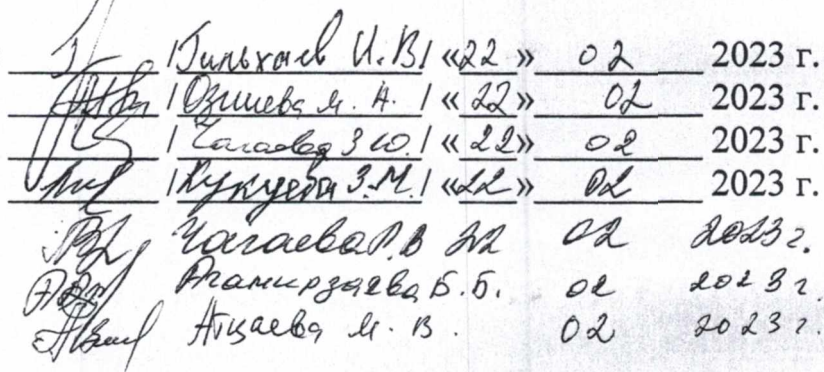 /Гильхаев И.В/ «22» 02 2023 г.
/Озиева М. А. / «22» 02 2023 г.
/ Чагаева З Ю. / «22» 02 2023 г.
/Кукуева З.М. / «22» 02 2023 г.
Чагаева Р.В 22 02 2023 г.
Агамирзаева Б.Б. 02 2023 г.
Атцаева М. В. 02 2023 г.